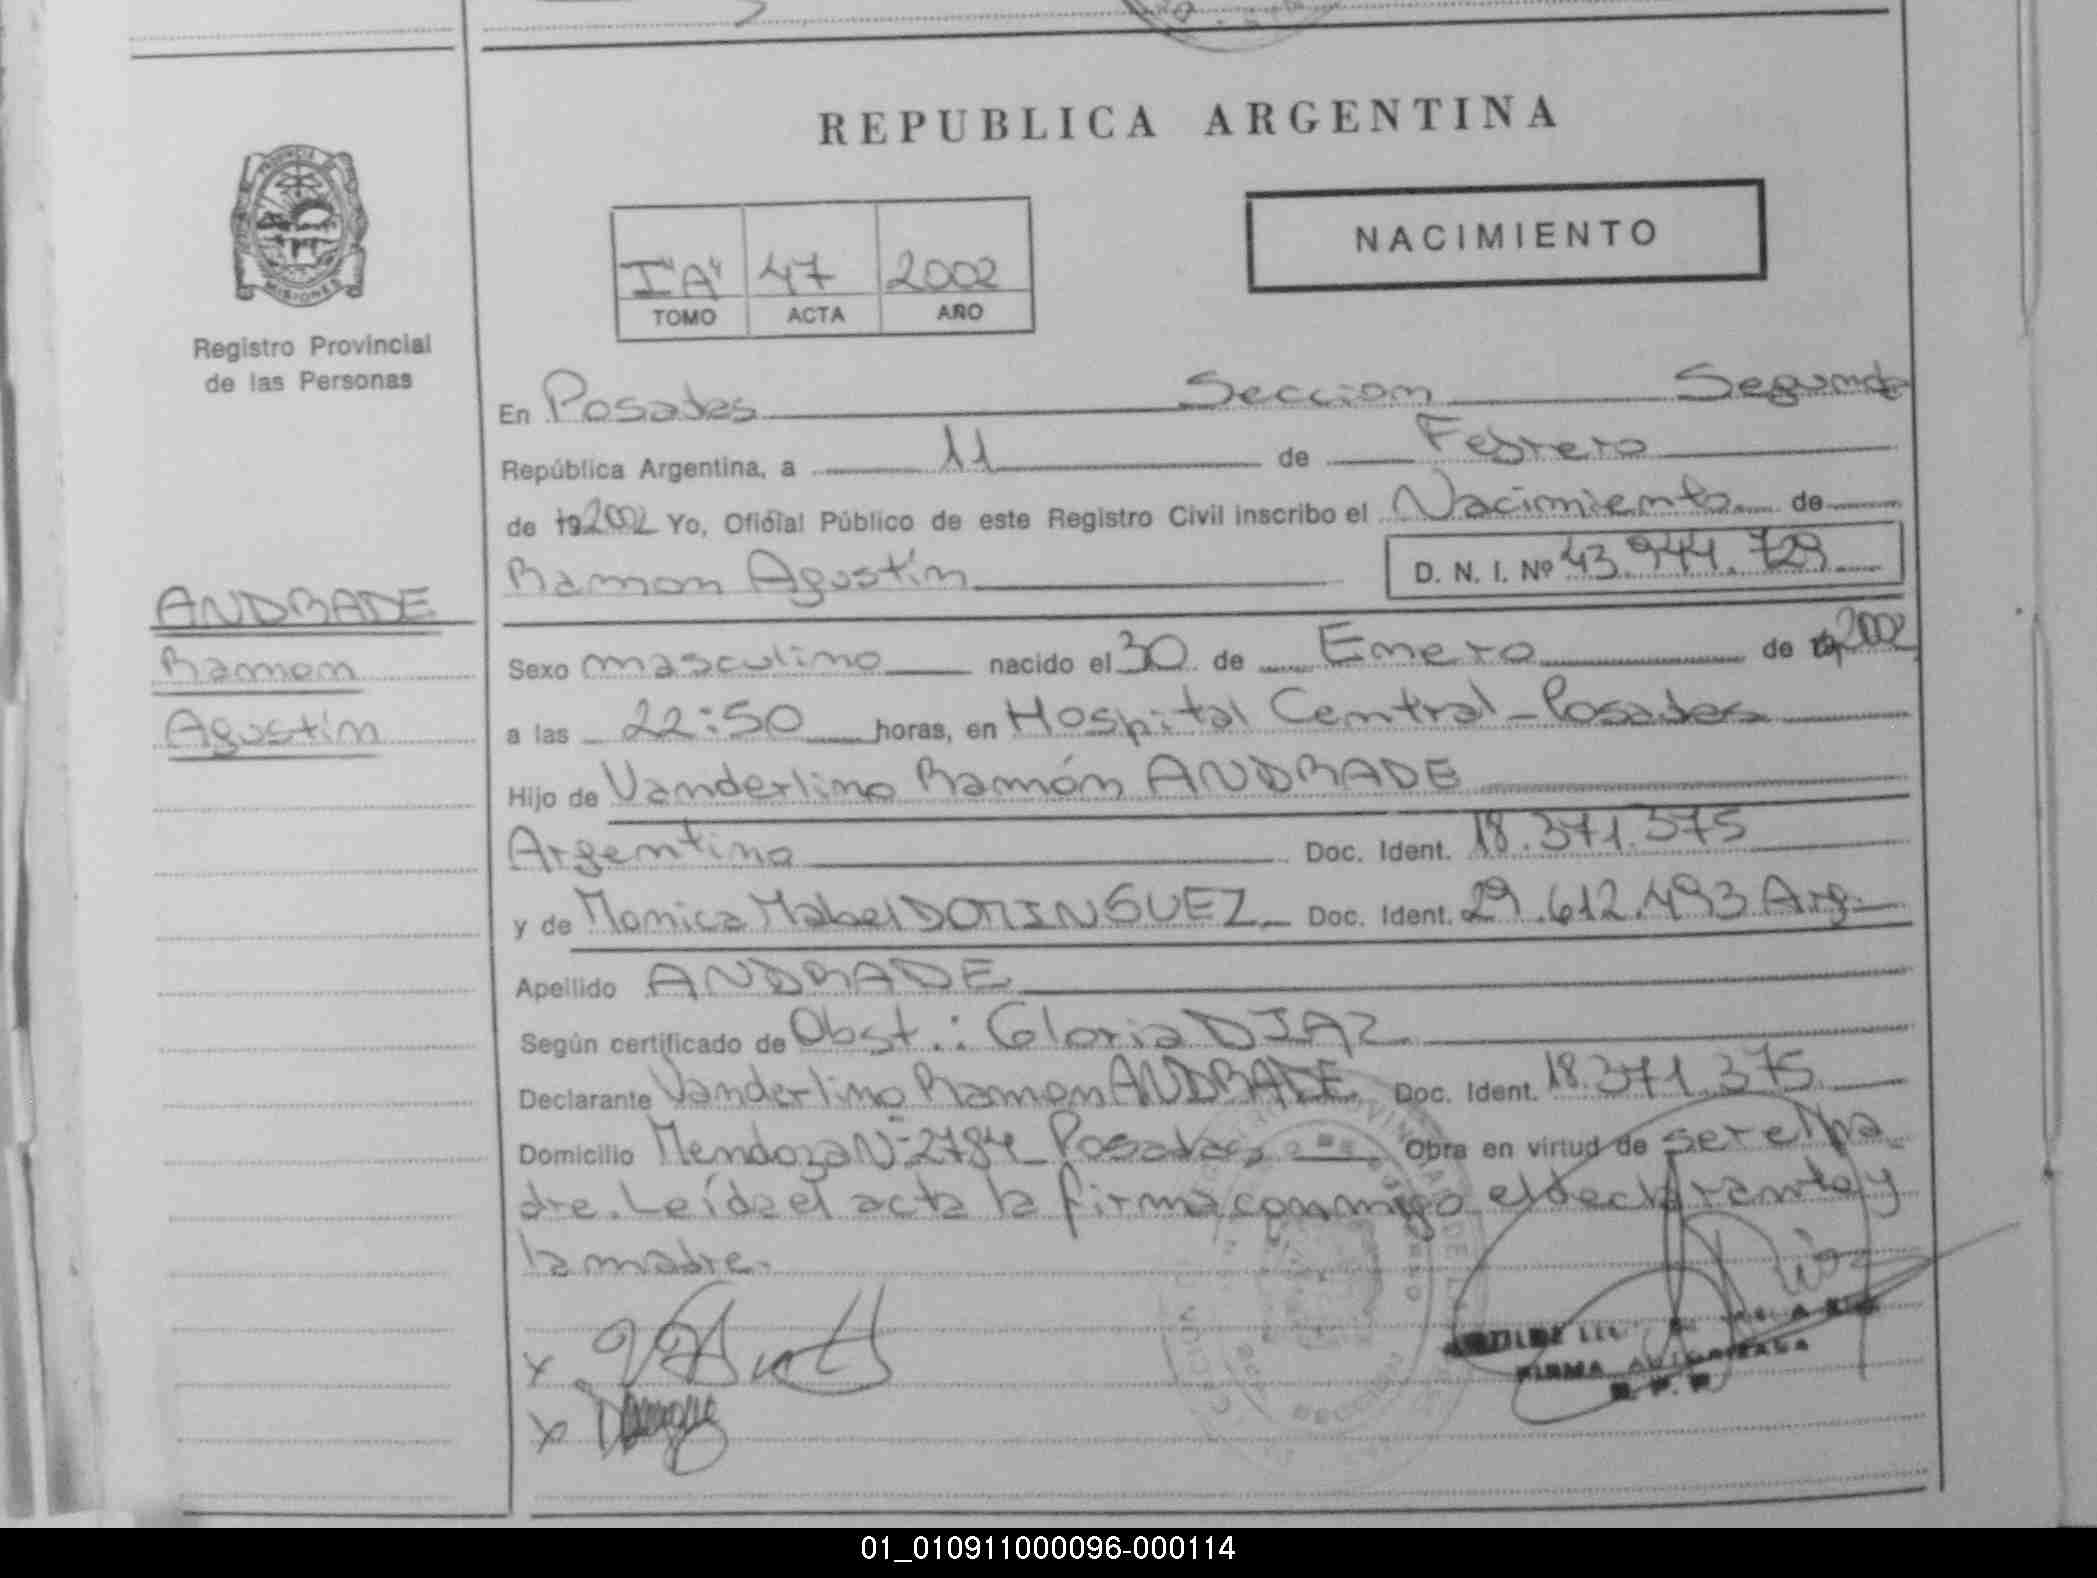 REPUBLICA ARGENTINA
NACIMIENTO
I "A" 47 2002
TOMO ACTA AÑO
PROVINCIA DE
MISIONES
Registro Provincial
de las Personas
En Posadas Seccion Segunda
República Argentina, a 11 de Febrero
de 2002 Yo, Oficial Público de este Registro Civil inscribo el Nacimiento de
Ramon Agustín D. N. I. Nº 43.944.729
ANDRADE
Ramon
Agustín
Sexo masculino nacido el 30 de Enero de 2002
a las 22:50 horas, en Hospital Central - Posadas
Hijo de Vanderlino Ramón ANDRADE
Argentino Doc. Ident. 18.371.375
y de Monica Mabel DOMINGUEZ Doc. Ident. 29.612.493 Arg.
Apellido ANDRADE
Según certificado de Obst.: Gloria DIAZ
Declarante Vanderlino Ramon ANDRADE Doc. Ident. 18.371.375
Domicilio Mendoza Nº 2784 Posadas Obra en virtud de ser el pa
dre. Leída el acta la firma conmigo el declarante y
la madre.
x
x
FIRMA AUTORIZADA
R. P. P.
01_010911000096-000114